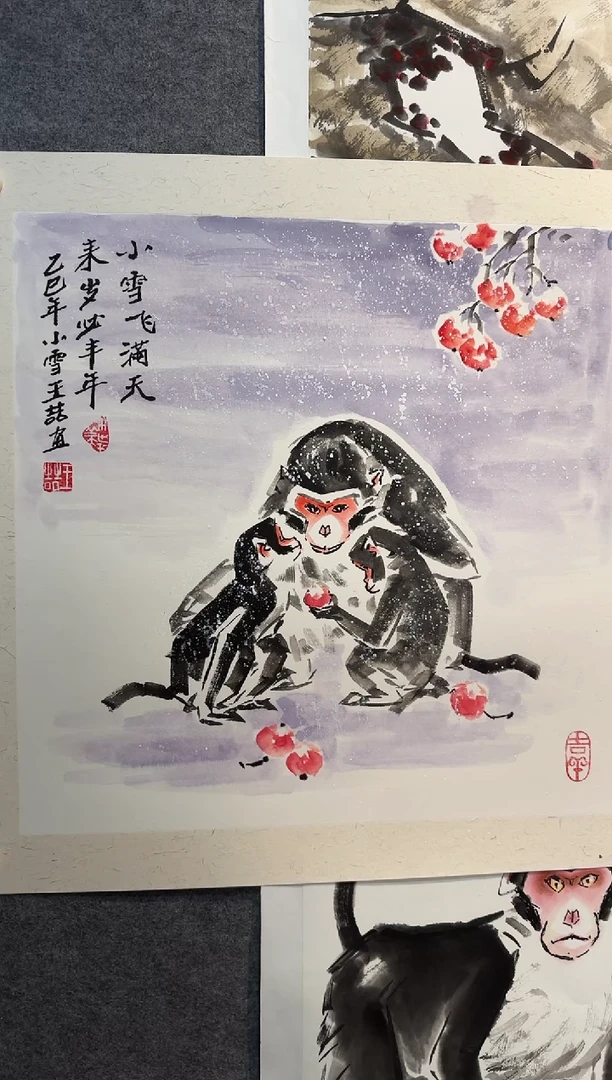 小雪飞满天
来岁必丰年
乙巳年小雪王喆画